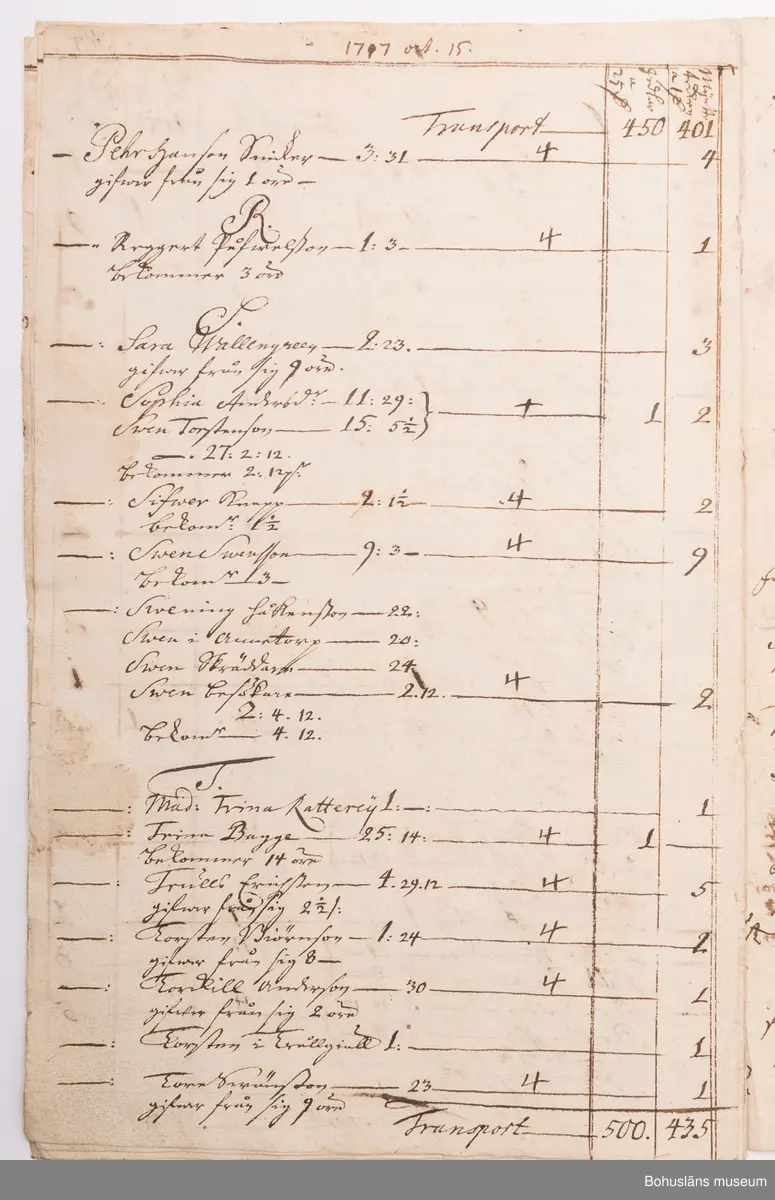 1707 oct. 15.
Transport 450 401
Pehr Hanson Snicker — 3: 31 — 4 — 4
gifwer från sig 1 öre —
R.
Reggert — 1: 3 — 4 — 1
bekommer 3 öre
S.
Sara Wallengreen — 2: 23. — 3
gifwer från sig 9 öre.
Sophia Andersdr — 11: 29:
Swen Torstenson — 15: 5½ — 4 — 1 2
27: 2: 12.
bekommer 2: 12
Sifwer Knapp — 2: 1½ — 4 — 2
bekomr 1½
Swen Swensson — 9: 3 — 4 — 9
bekomr 3 —
Swening Håkenson — 22:
Swen i Annetorp — 20:
Swen Skräddare — 24
Swen besökare — 2.12. — 4 — 2
2: 4. 12.
bekomr — 4. 12.
T.
Mad: Trina 1: — : — 1
Trina Bagge — 25: 14: — 4 — 1 —
bekommer 14 öre
Trulls Erichsson — 4. 29.12 — 4 — 5
gifwer från sig 2½
Torsten Biörnson — 1: 24 — 4 — 2
gifwer från sig 8 —
Torkill Anderson — 30 — 4 — 1
gifwer från sig 2 öre
Torsten i 1: — 1
Tore Swänson — 23 — 4 — 1
gifwer från sig 9 öre
Transport — 500. 435
Bohusläns museum